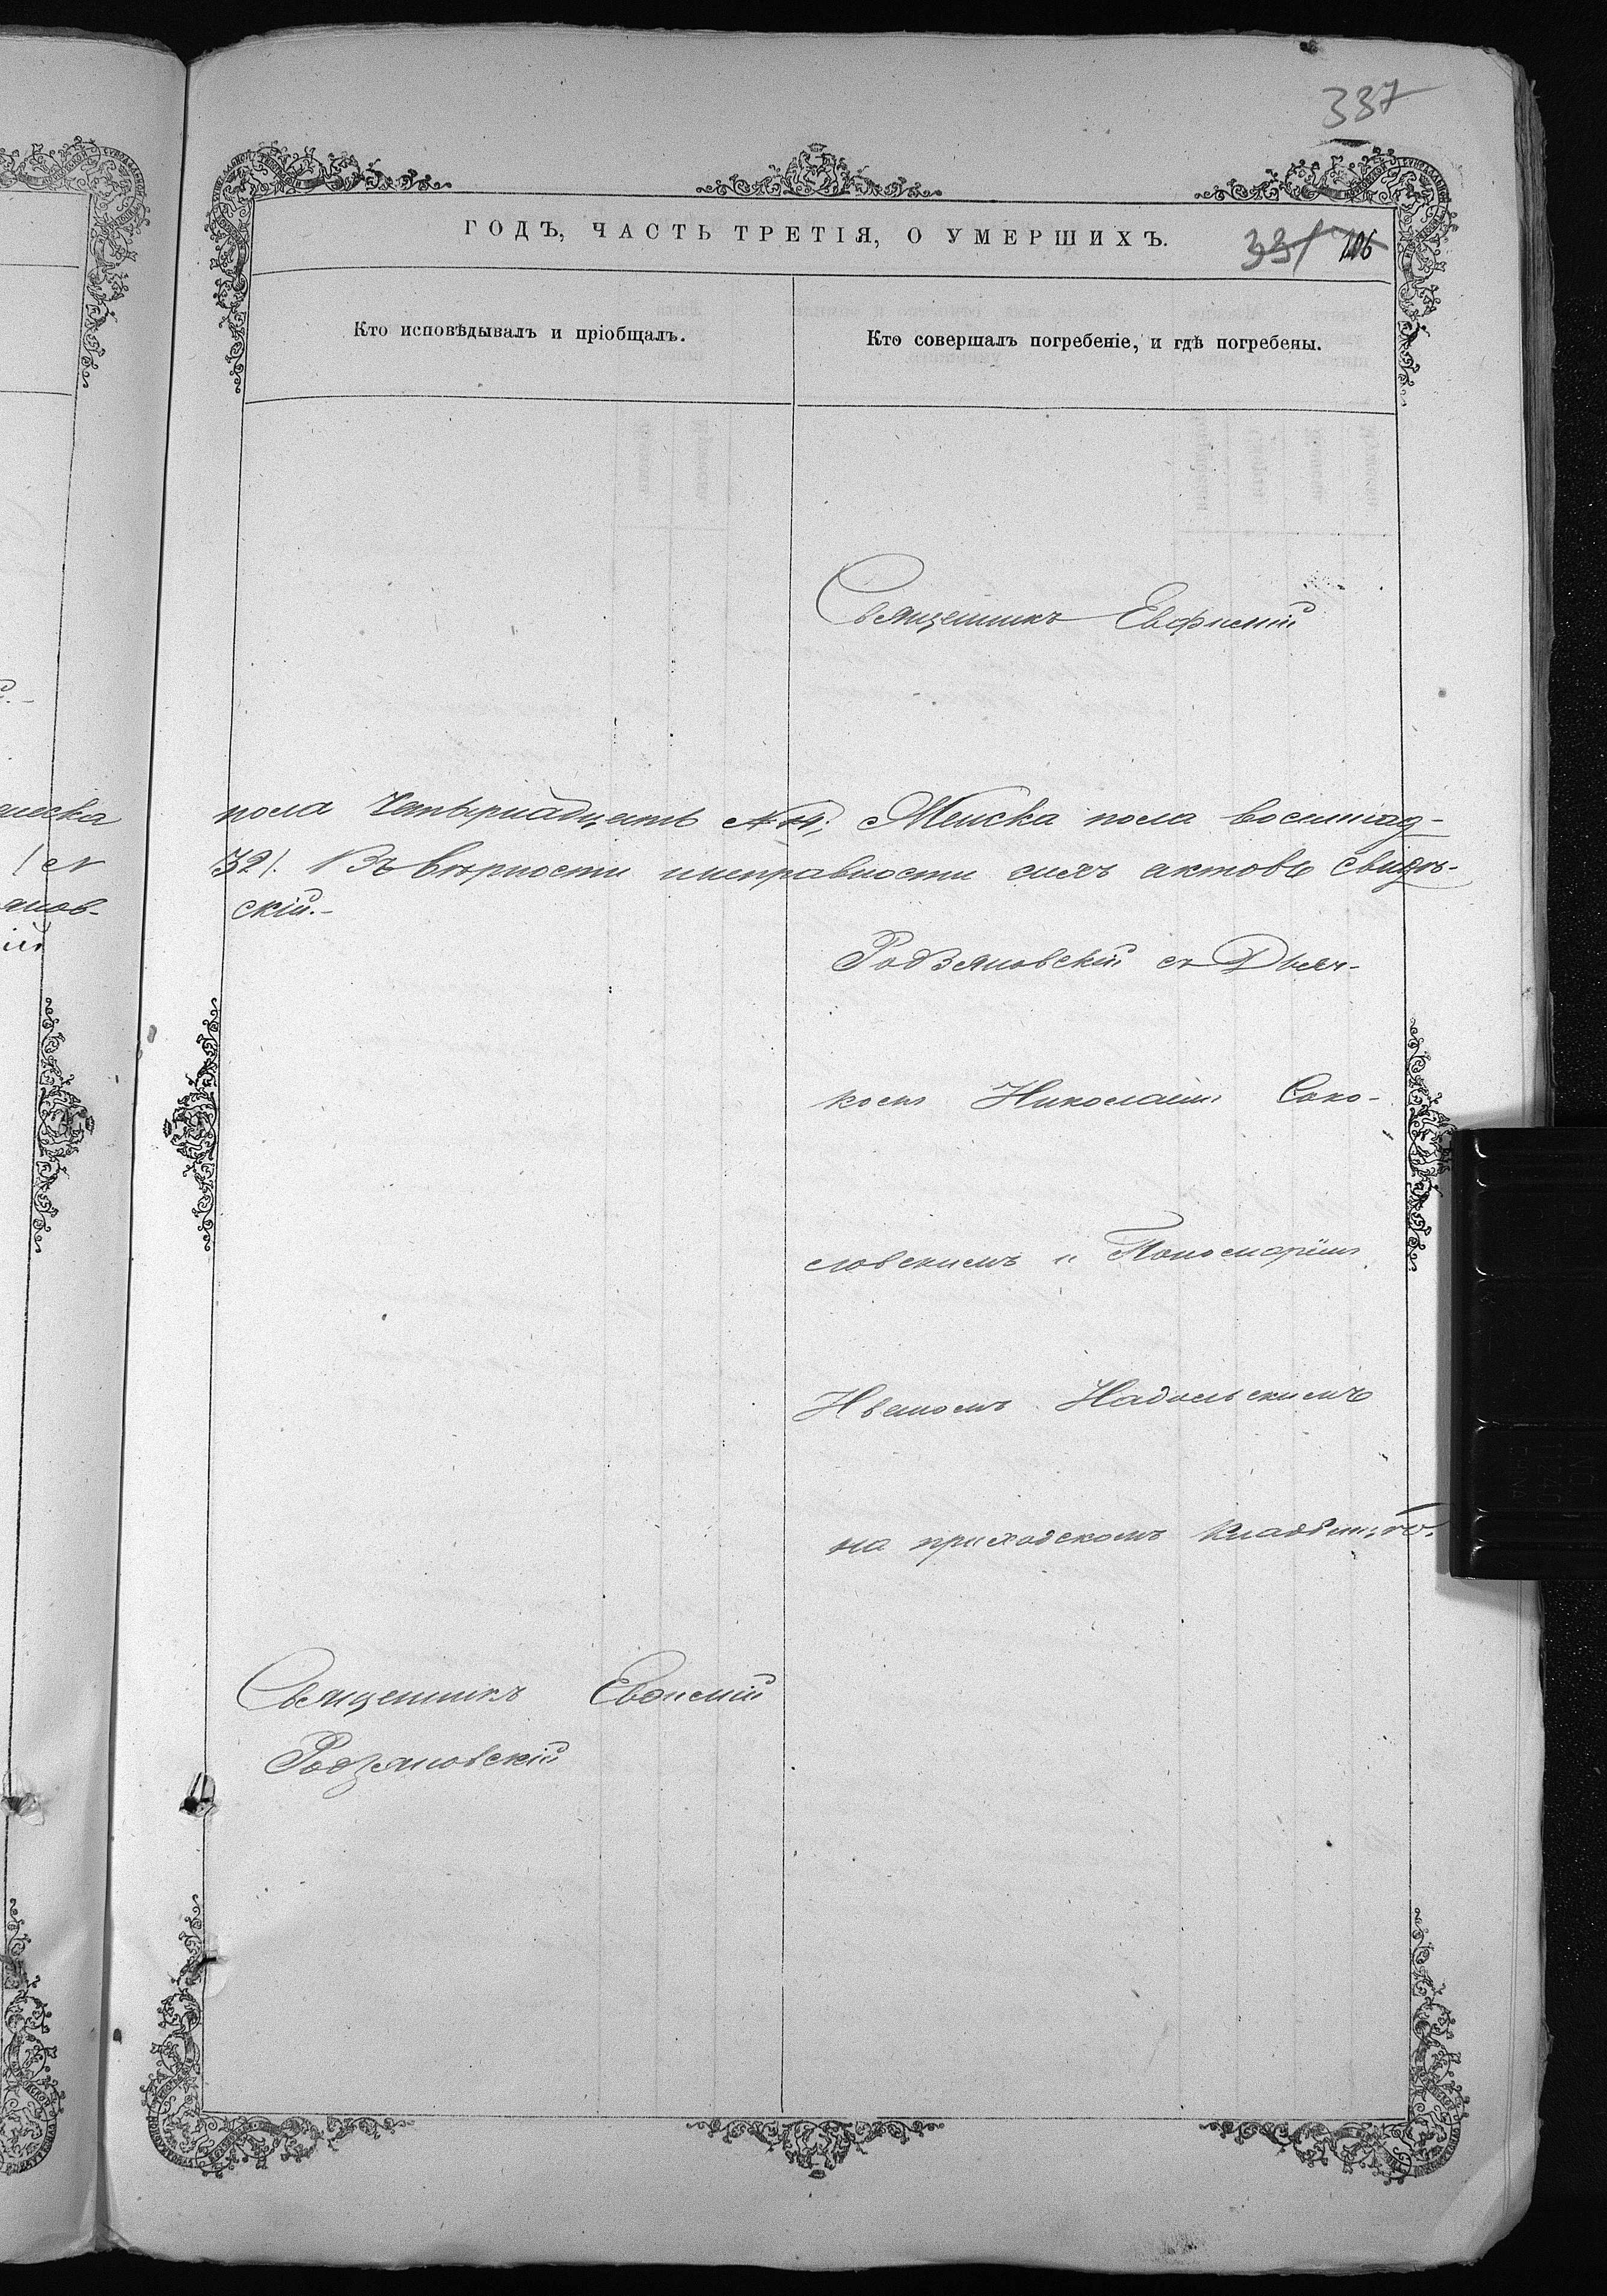 337
ГОДЪ, ЧАСТЬ ТРЕТІЯ, О УМЕРШИХЪ.
331 106
Кто исповѣдывалъ и пріобщалъ.
Кто совершалъ погребеніе, и гдѣ погребены.
Священникъ Евфимій
пола Четырнадцать №14; Женска пола восемнад-
32/. Въ вѣрности иисправности сихъ актовъ свидѣ-
скій.-
Родзяновскій съ Дьяч-
комъ Николаемъ Соко-
ловскимъ и Пономарёмъ
Иваномъ Надольскимъ
на приходскомъ кладбищѣ.
Священникъ Евфимій
Родзяновскій